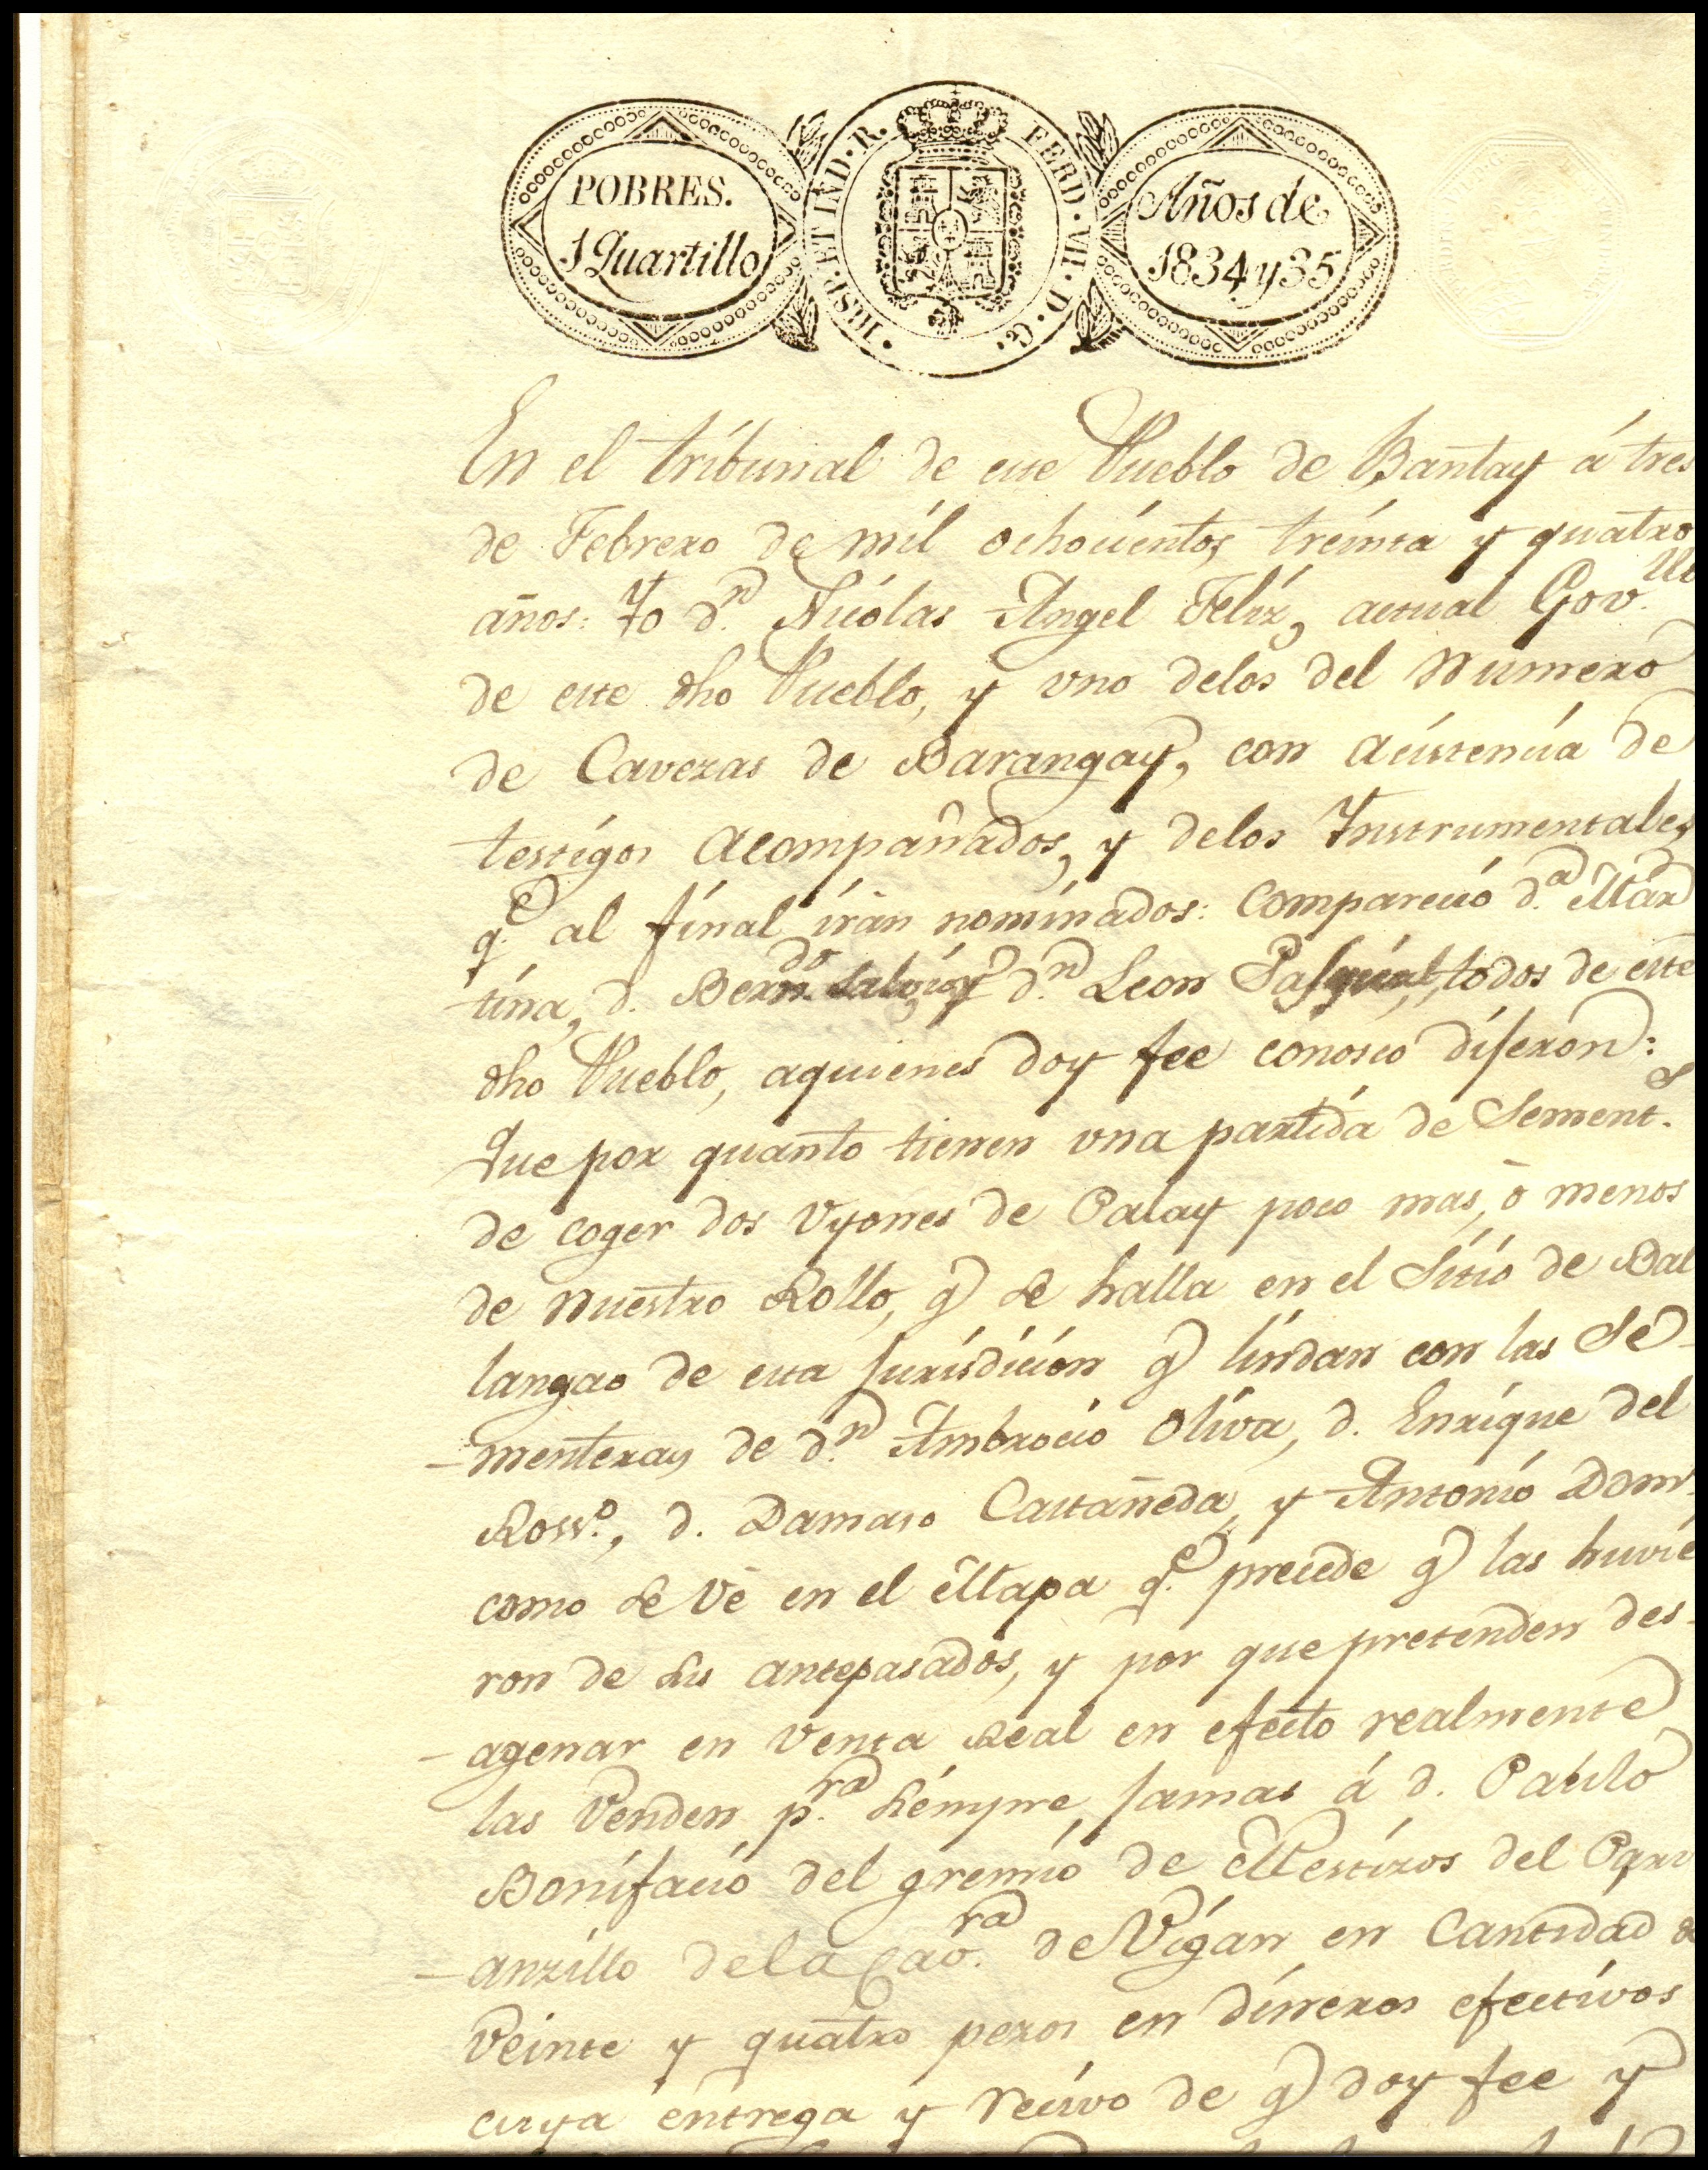 POBRES.
1 Quartillo
HISP. ET IND. R.
FERD. VII. D. G.
Años de
1834 y 35
En el tribunal de este Pueblo de Bantay á tres
de Febrero de mil ochocientos treinta y quatro
años: Yo d.n Nicolas Angel Feliz, actual Gov.llo
de este dho Pueblo, y vno delos del Numero
de Cavezas de Barangay, con acistencia de
testigos Acompañados, y delos Ynstrumentales,
q.e al final irán nominados: Compareció d.a Mar
tina, d. Bern.do d.n Leon Pasqual, todos de este
dho Pueblo, aquienes doy fee conosco diseron:
Que por quanto tienen vna partida de Sement.s
de coger dos Vyones de Palay poco mas, ò menos
de Nuestro Rollo, q se halla en el Sitio de Bal
langao de esta Jurisdicion q lindan con las Se-
-menteras de d.n Ambrocio Oliva, d. Enrique del
Ross.o, d. Damaso Castañeda, y Antonio Dom.
como se Vé en el Mapa q.e precede q las huvie
ron de sus antepasados, y por que pretenden des-
-agenar en Venta Real en efecto realmente
las Venden p.ra siempre Jamas á d. Pablo
Bonifacio del gremio de Mestizos del Pari
-anzillo dela Cav.ra de Vigan en Cantidad de
Veinte y quatro pezos en dineros efectivos
cuya entrega y recivo de q doy fee y